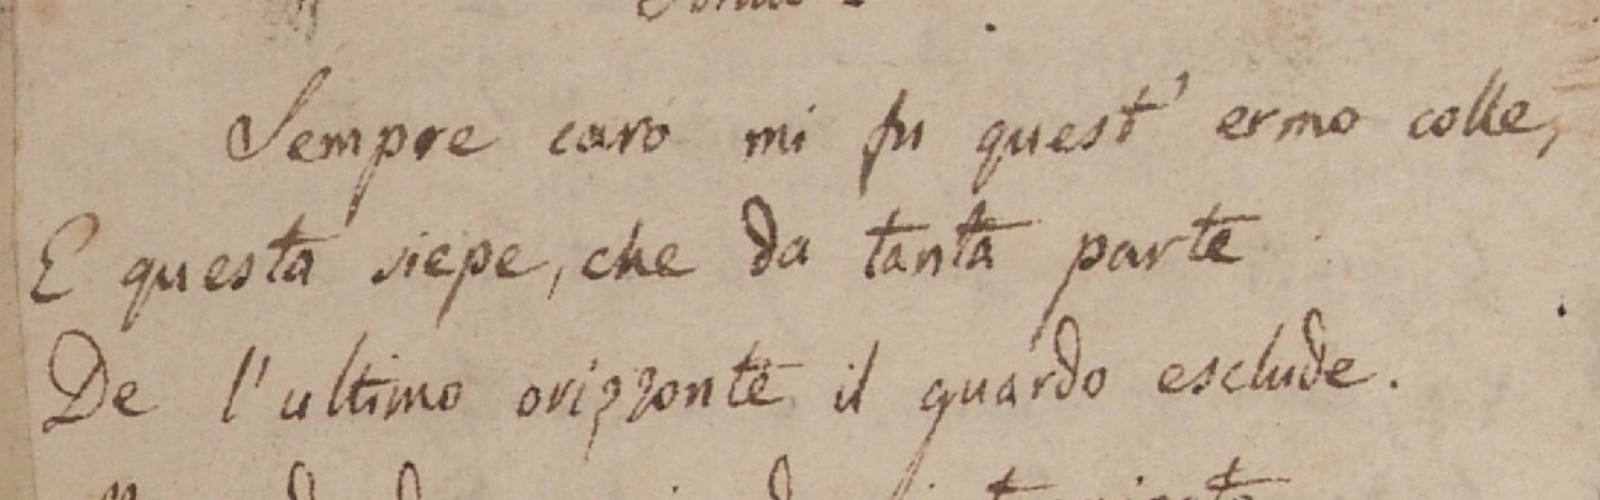 Sempre caro mi fu quest' ermo colle,
E questa siepe, che da tanta parte
De l'ultimo orizzonte il guardo esclude.